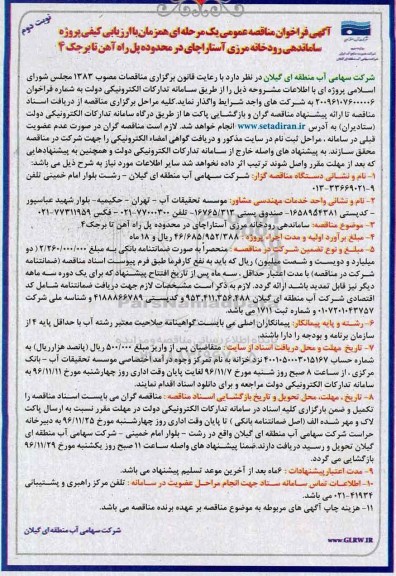 نوبت دوم
آگهی فراخوان مناقصه عمومی یک مرحله ای همزمان با ارزیابی کیفی پروژه
ساماندهی رودخانه مرزی آستاراچای در محدوده پل راه آهن تا برجک ۴
شرکت سهامی آب منطقه ای گیلان در نظر دارد با رعایت قانون برگزاری مناقصات مصوب ۱۳۸۳ مجلس شورای
اسلامی پروژه ای با اطلاعات مشروحه ذیل را از طریق سامانه تدارکات الکترونیکی دولت به شماره فراخوان
۲۰۰۹۶۱۰۷۶۰۰۰۰۰۶ به شرکت های واجد شرایط واگذار نماید. کلیه مراحل برگزاری مناقصه از دریافت اسناد
مناقصه تا ارائه پیشنهاد مناقصه گران و بازگشایی پاکت ها از طریق درگاه سامانه تدارکات الکترونیکی دولت
(ستادیران) به آدرس www.setadiran.ir انجام خواهد شد. لازم است مناقصه گران در صورت عدم عضویت
قبلی در سامانه ، مراحل ثبت نام در سایت مذکور و دریافت گواهی امضاء الکترونیکی را جهت شرکت در مناقصه
محقق سازند. به پیشنهاد های واصله خارج از سامانه تدارکات الکترونیکی دولت و همچنین به پیشنهادهایی
که بعد از مهلت مقرر واصل شوند ترتیب اثر داده نخواهد شد سایر اطلاعات مورد نیاز به شرح ذیل می باشد:
۱- نام و نشانی دستگاه مناقصه گزار: شرکت سهامی آب منطقه ای گیلان - رشت بلوار امام خمینی تلفن
۹-۳۳۶۶۹۰۲۱-۰۱۳
۲- نام و نشانی واحد خدمات مهندسی مشاور: موسسه تحقیقات آب - تهران - حکیمیه- بلوار شهید عباسپور
- کدپستی ۱۶۵۸۹۵۴۳۸۱- صندوق پستی ۱۶۷۶۵/۳۱۳- تلفن ۷۷۰۰۰۳۰۰-۰۲۱ - فکس ۷۷۳۱۱۹۵۹-۰۲۱
۳- موضوع مناقصه: ساماندهی رودخانه مرزی آستاراچای در محدوده پل راه آهن تا برجک ۴
۴- مبلغ برآورد اولیه و مدت اجراء پروژه : ۴۶/۶۸۵/۹۵۲/۳۸۸ ریال و ۱۸ ماه
۵- مبلغ و نوع تضمین شرکت در مناقصه : منحصراً به صورت ضمانتنامه بانکی به مبلغ ۲/۲۶۰/۰۰۰/۰۰۰ (دو
میلیارد و دویست و شصت میلیون) ریال که باید به نفع کارفرما طبق فرم پیوست اسناد مناقصه (ضمانتنامه
شرکت در مناقصه) با مدت اعتبار حداقل . سه ماه پس از تاریخ افتتاح پیشنهاد که برای یک دوره سه ماهه
دیگر نیز قابل تمدید باشد، ارائه گردد. لازم به ذکر است مشخصات لازم جهت دریافت ضمانتنامه شامل کد
اقتصادی شرکت آب منطقه ای گیلان ۹۵۳،۴۱۱،۳۵۶،۴۸۸ و کدپستی ۴۱۸۸۸۶۶۷۸۹ و شناسه ملی شرکت
۱۰۷۲۰۱۰۴۳۷۵۷ و شماره ثبت ۱۷۱۱ می باشد.
۶- رشته و پایه پیمانکار: پیمانکاران اصلی می بایست گواهینامه صلاحیت معتبر رشته آب با حداقل پایه ۴ از
سازمان برنامه و بودجه را دارا باشند.
۷- تاریخ، مهلت و محل دریافت اسناد از سایت: متقاضیان پس از واریز مبلغ ۵۰۰/۰۰۰ ریال (پانصد هزار ریال) به
شماره حساب ۴۰۰۱۰۵۰۰۰۳۰۱۵۱۶۷ نزد خزانه به نام تمرکز وجوه درآمد اختصاصی موسسه تحقیقات آب - بانک
مرکزی ، از ساعت ۸ صبح روز شنبه مورخ ۹۶/۱۱/۷ لغایت پایان وقت اداری روز چهارشنبه مورخ ۹۶/۱۱/۱۱ به
سامانه تدارکات الکترونیکی دولت مراجعه و برای دانلود اسناد اقدام نمایند.
۸- تاریخ ، مهلت، محل تحویل و تاریخ بازگشایی اسناد مناقصه : مناقصه گران می بایست اسناد مناقصه را
تکمیل و ضمن بارگزاری کلیه اسناد در سامانه تدارکات الکترونیکی دولت در مهلت مقرر نسبت به ارسال پاکت
لاک و مهر شده الف (اصل ضمانتنامه بانکی ) تا پایان وقت اداری روز چهارشنبه مورخ ۹۶/۱۱/۲۵ به دبیرخانه
حراست شرکت سهامی آب منطقه ای گیلان واقع در رشت - بلوار امام خمینی - شرکت سهامی آب منطقه ای
گیلان تحویل و رسید دریافت دارند. ضمنا پیشنهاد های واصله ساعت ۱۱ صبح روز یکشنبه مورخ ۹۶/۱۱/۲۹
بازگشایی می گردد.
۹- مدت اعتبار پیشنهادات : ۶ماه بعد از آخرین موعد تسلیم پیشنهاد می باشد.
۱۰- اطلاعات تماس سامانه ستاد جهت انجام مراحل عضویت در سامانه : تلفن مرکز راهبری و پشتیبانی
۴۱۹۳۴-۰۲۱ می باشد.
۱۱- هزینه چاپ آگهی های مربوطه به موضوع مناقصه بر عهده برنده مناقصه می باشد.
شرکت سهامی آب منطقه ای گیلان
www.GLRW.IR